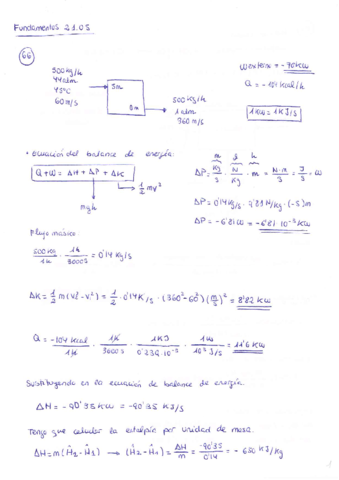 Fundamentos 21.05
66
500 kg/h
44 atm
45°C
60 m/s
5m
5m
500 kg/h
1 atm
360 m/s
= -70 kW
Q = -104 kcal/h
1 kW = 1 KJ/s
• Ecuación del balance de energía:
Q + W = ΔH + ΔP + ΔK
mgh
1/2 mv²
ΔP = Kg/s · N/Kg · m = N·m/s = J/s = W
m g h
ΔP = 0'14 Kg/s · 9'81 N/Kg · (-5) m
ΔP = -6'81 W = -6'81·10⁻³ KW
Flujo másico
500 Kg/1h · 1h/3600s = 0'14 Kg/s
ΔK = 1/2 m (v₂² - v₁²) = 1/2 · 0'14 K/s · (360² - 60²) (m/s)² = 8'82 KW
Q = -104 Kcal/1h · 1h/3600s · 1KJ/0'239·10⁻³ · 1W/10³ J/s = 116 KW
Substituyendo en la ecuación de balance de energía
ΔH = -90'35 KW = -90'35 KJ/s
Tengo que calcular la entalpía por unidad de masa.
ΔH = m (Ĥ₂ - Ĥ₁) → (Ĥ₂ - Ĥ₁) = ΔH/m = -90'35/0'14 = -650 KJ/Kg
1